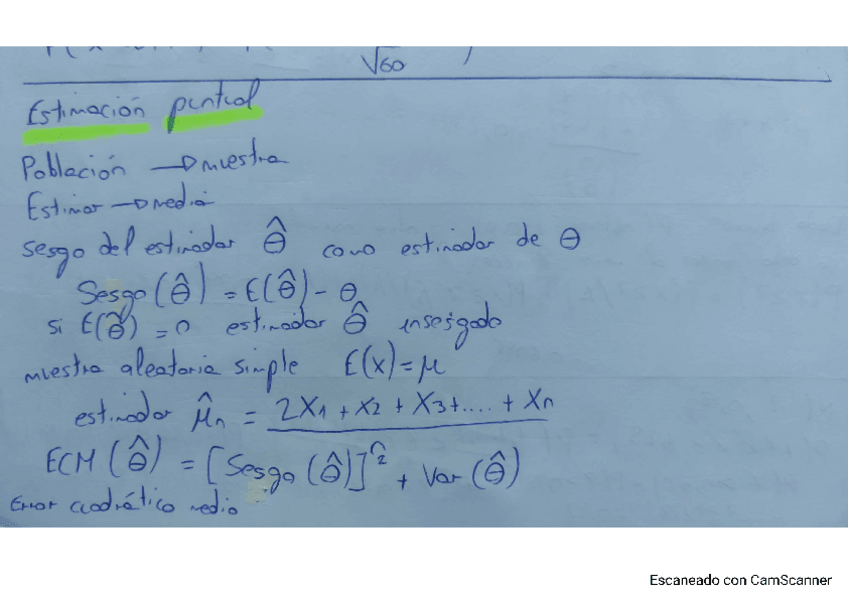 √60 )
Estimación puntual
Población → muestra
Estimar → media
Sesgo del estimador θ̂ como estimador de θ
Sesgo (θ̂) = E(θ̂) - θ
si E(θ̂) = 0 estimador θ̂ insesgado
muestra aleatoria simple E(x) = μ
estimador μ̂n = 2X1 + X2 + X3 + .... + Xn
ECM (θ̂) = [Sesgo (θ̂)]^2 + Var (θ̂)
Error cuadrático medio
Escaneado con CamScanner